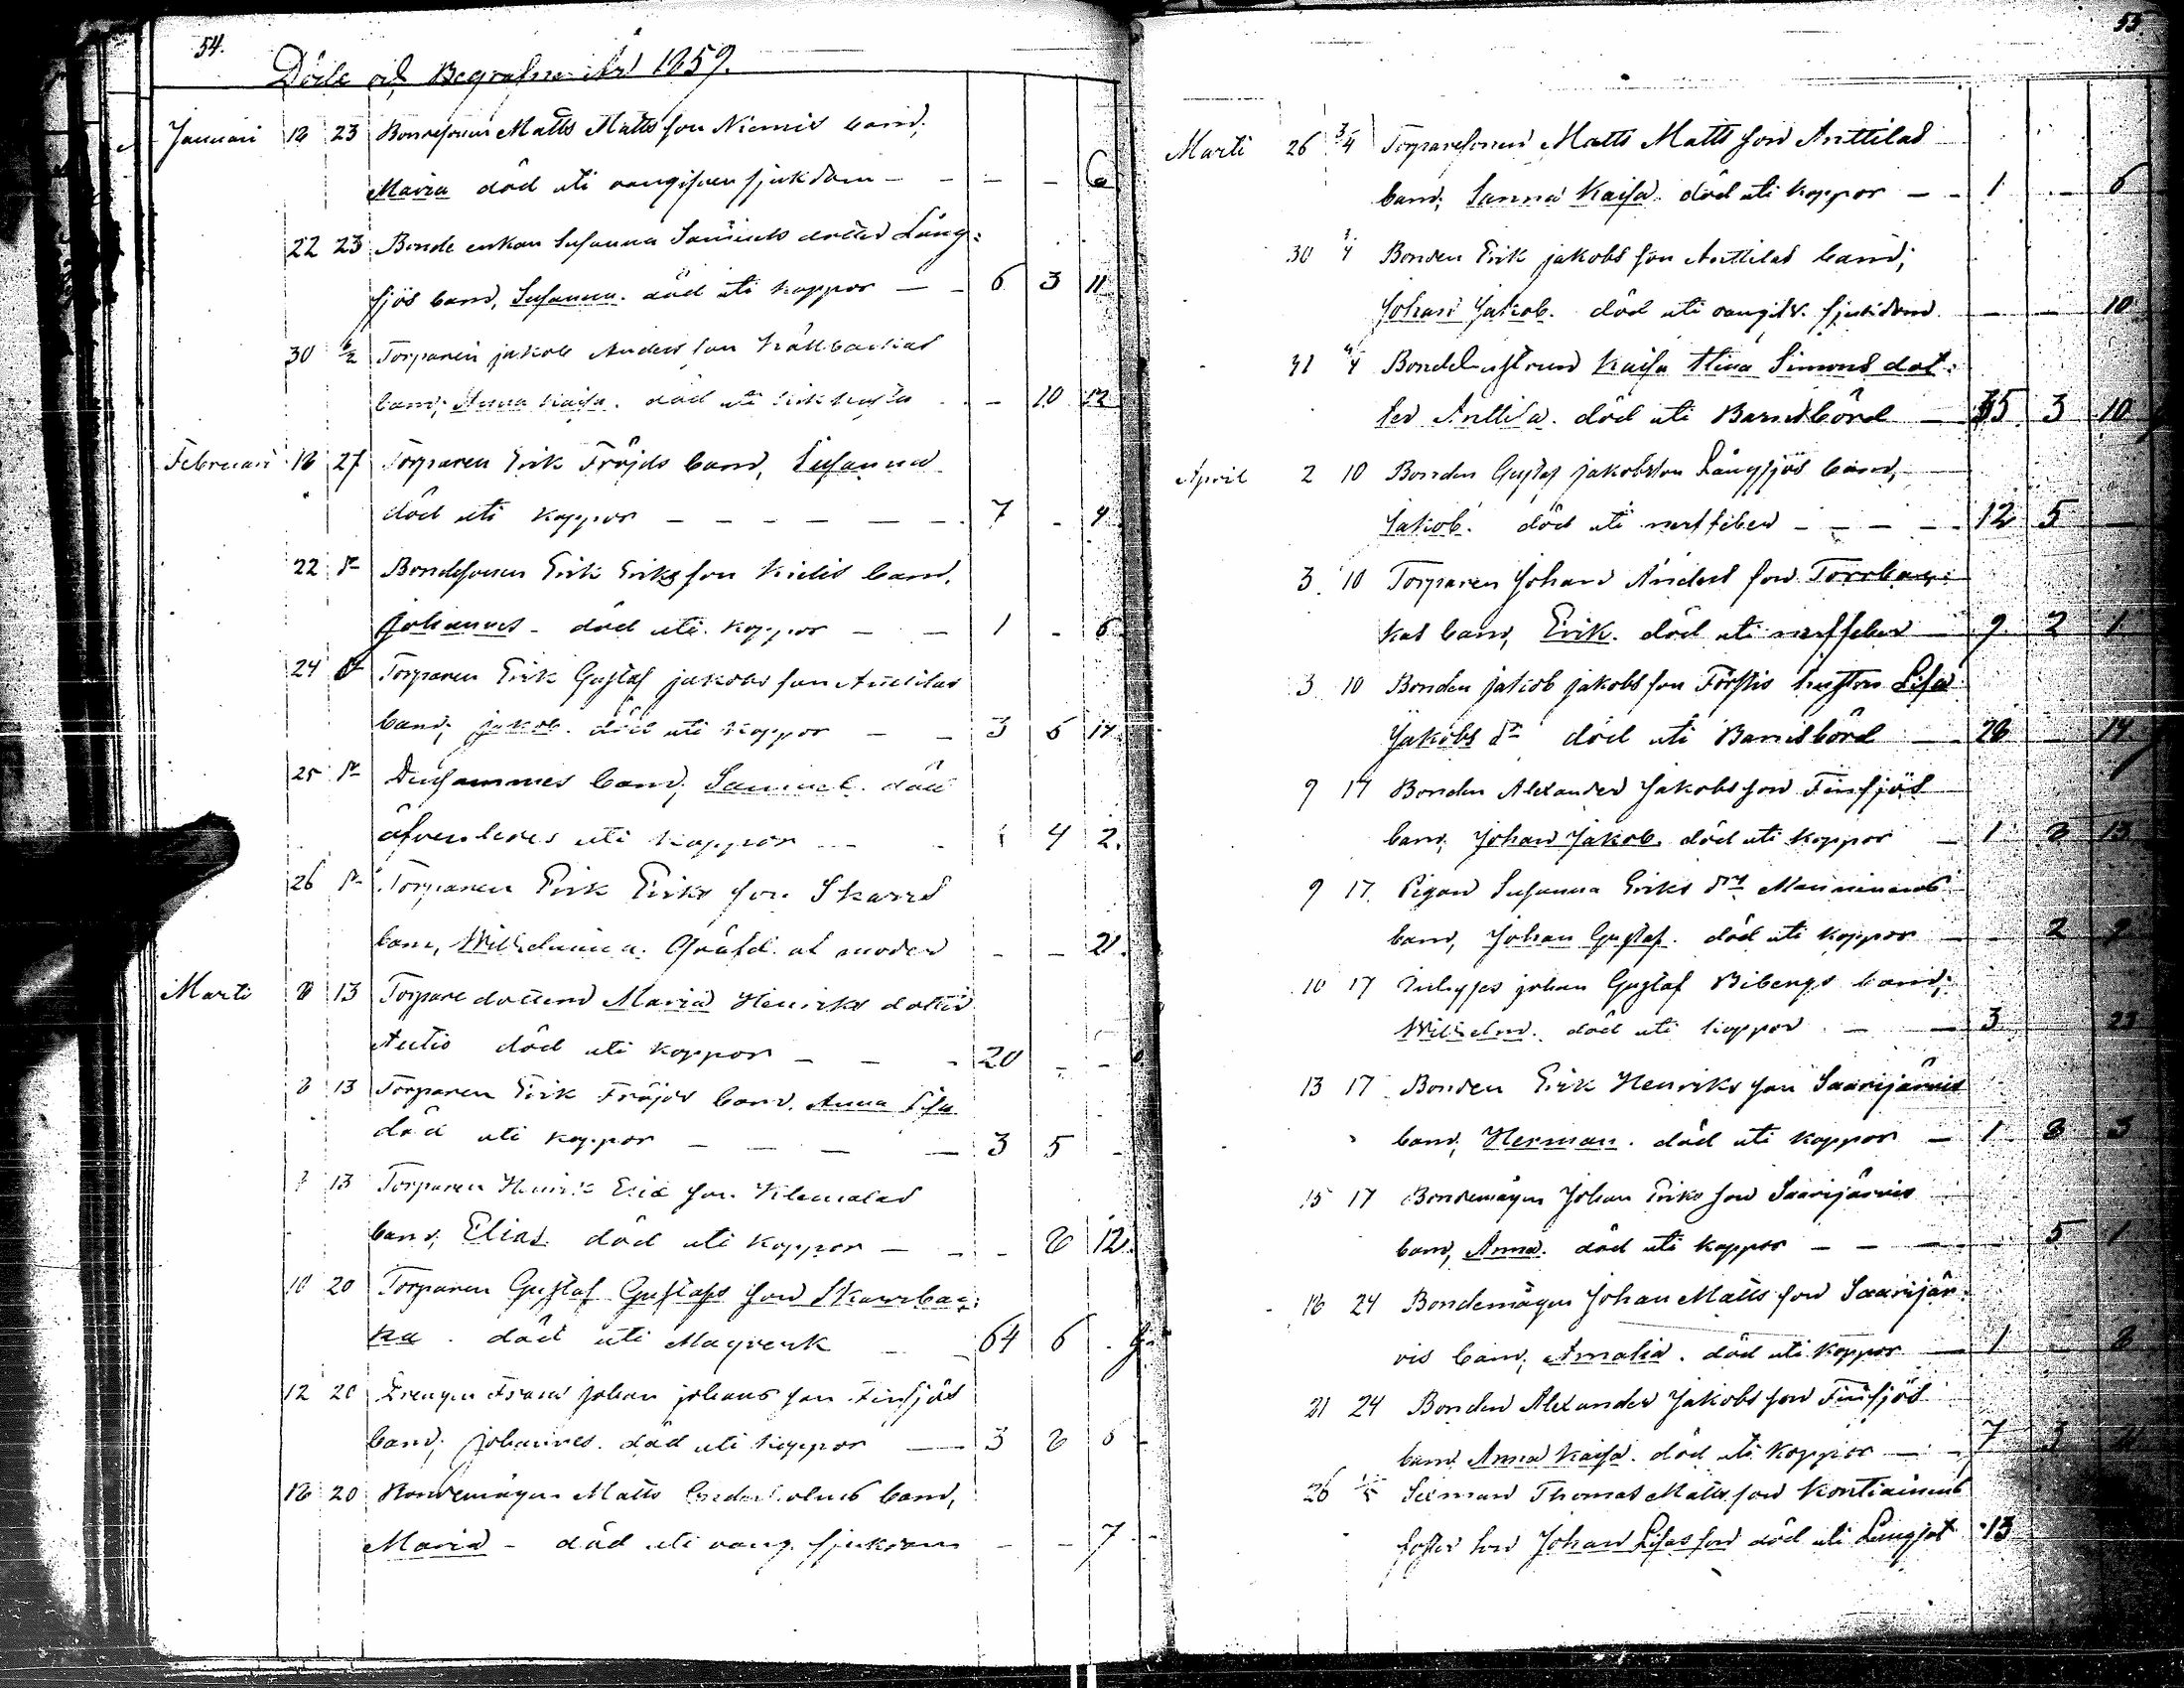 54.
Döde och Begrafne år 1859.
Januari 18 23 Bondesonen Matts Matts son Niemis barn,
Maria död uti oangifven sjukdom — — — 6
22 23 Bonde enkan Susanna Samuels dotter Lång:
sjös barn, Susanna. död uti koppor — — 6 3 11
30 6/2 Torparen jakob Anders son
barn, Anna Kaisa. död uti kikhosta — 10 12
Februari 18 27 Torparen Erik Fröjds barn, Susanna
död uti koppor — — — — — — 7 - 4
22 Bondesonen Erik Eriks son barn,
Johannes - död uti koppor — — 1 - 6
24 Torparen Erik Gustaf jakobs son Anttilas
barn, jakob. död uti koppor — — 3 6 14
25 Densammes barn, Samuel. död
äfvenledes uti koppor — - 1 4 2.
26 Torparen Erik Eriks son Skarrs
barn, Wilhelmina. Qväfd af moder - - 21.
Marti 8 13 Torpare dottern Maria Henriks dotter
Autio död uti koppor — — - 20 - -
8 13 Torparen Erik Fröjds barn, Anna Lisa
död uti koppor — — — — 3 5 -
13 Torparen Henrik Eric son
barn, Elias. död uti koppor — - - 8 12.
10 20 Torparen Gustaf Gustafs son Skarrbac:
ka. död uti Magverk — 64 6
12 20 Drengen Frans Johan johans son Finsjös
barn, Johannes. död uti koppor — 3 8 6
18 20 Bondemågen Matts barn,
Maria - död uti oang. sjukdom - - 7
55.
Marti 26 3/4 Torparesonen Matts Matts son Anttilas
barn, Sanna Kaisa. död uti koppor — - 1 - 6
30 3/4 Bonden Erik jakobs son Anttilas barn,
Johan Jakob. död uti oangifv. sjukdom. — — 10
31 4/4 Bondehustrun Kaisa Stina Simons dot:
ter Anttila. död uti Barnsbörd — 35 3 10
April 2 10 Bonden Gustaf jakobsson Långsjös barn,
Jakob. död uti nerffeber - — — — 12 5 —
3. 10 Torparen Johan Anders son Torrbac:
kas barn, Erik. död uti nerffeber — 9 2 1
3 10 Bonden jakob jakobs son Förstis hustru Lisa
Jakobs dr död uti Barnsbörd — 28 — 14.
9 17 Bonden Alexander Jakobs son Finsjös
barn, Johan Jakob. död uti koppor — 1 8 13
9 17. Pigan Susanna Eriks dr Manninens
barn, Johan Gustaf. död uti koppor — - 2 9
10 17 johan Gustaf Bibergs barn,
Wilhelm. död uti koppor. — — 3 23
13 17 Bonden Erik Henriks son Saarijärvis
barn, Herman. död uti koppor — 1 8 3
15 17 Bondemågen Johan Eriks son Saarijärvis
barn, Anna. död uti koppor — — — 5 1
18 24 Bondemågen Johan Matts son Saarijär:
vis barn, Amalia. död uti koppor — 1 - 8
21 24 Bonden Alexander Jakobs son Finsjös
barn Anna Kaisa. död uti koppor — — 7 3 21
26 Sexman Thomas Matts son Kontiainens
foster son Johan Lisas son död uti Lungsot 13